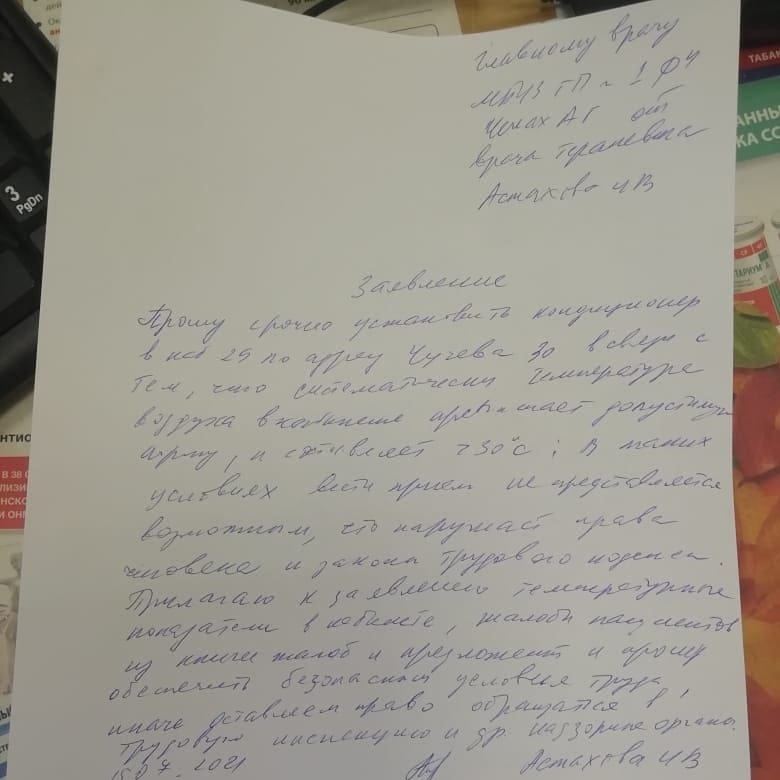 Главному врачу
МБУЗ ГП № 1
Чемах АГ от
врача терапевта
Астахова ИВ
Заявление
Прошу срочно установить кондиционер
в каб 29 по адресу Чучева 30 в связи с
тем, что систематически температура
воздуха в кабинете превышает допустимую
норму, и составляет >30°С; В таких
условиях вести прием не представляется
возможным, что нарушает права
человека и законы трудового кодекса.
Прилагаю к заявлению температурные
показатели в кабинете, жалобы пациентов
из книги жалоб и предложений и прошу
обеспечить безопасные условия труда,
иначе оставляем право обращаться в
трудовую инспекцию и др. надзорные органы.
07.2021 Астахова ИВ
3
PgDn
ТАБАК
АННЫ
КА СС
ТАРИУМ
НТИО
В 38